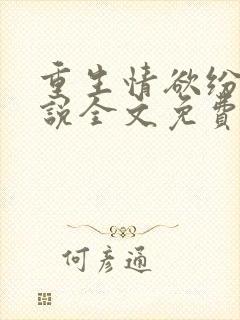 重生情欲纷
说全文免费
何彦通